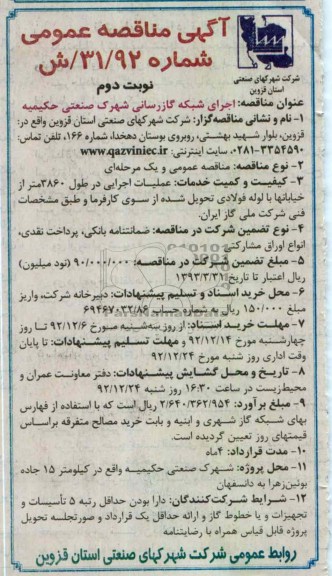 آگهی مناقصه عمومی
شماره ۳۱/۹۲/ش
نوبت دوم
شرکت شهرکهای صنعتی
استان قزوین
عنوان مناقصه: اجرای شبکه گازرسانی شهرک صنعتی حکیمیه
۱- نام و نشانی مناقصه‌گزار: شرکت شهرکهای صنعتی استان قزوین واقع در:
قزوین، بلوار شهید بهشتی، روبروی بوستان دهخدا، شماره ۱۶۶، تلفن تماس:
۰۲۸۱-۳۳۵۴۵۹۰، سایت اینترنتی: www.qazviniec.ir
۲- نوع مناقصه: مناقصه عمومی و یک مرحله‌ای
۳- کیفیت و کمیت خدمات: عملیات اجرایی در طول ۳۸۶۰متر از
خیابانها با لوله فولادی تحویل شده از سوی کارفرما و طبق مشخصات
فنی شرکت ملی گاز ایران.
۴- نوع تضمین شرکت در مناقصه: ضمانتنامه بانکی، پرداخت نقدی،
انواع اوراق مشارکتی
۵- مبلغ تضمین شرکت در مناقصه: ۹۰/۰۰۰/۰۰۰ (نود میلیون)
ریال اعتبار تا تاریخ ۱۳۹۳/۳/۳۱
۶- محل خرید اسناد و تسلیم پیشنهادات: دبیرخانه شرکت، واریز
مبلغ ۱۵۰/۰۰۰ ریال به شماره حساب
۷- مهلت خرید اسناد: از روز سه‌شنبه مورخ ۹۲/۱۲/۶ تا روز
چهارشنبه مورخ ۹۲/۱۲/۱۴ و مهلت تسلیم پیشنهادات: تا پایان
وقت اداری روز شنبه مورخ ۹۲/۱۲/۲۴
۸- تاریخ و محل گشایش پیشنهادات: دفتر معاونت عمران و
محیط‌زیست در ساعت ۱۶:۳۰ روز شنبه ۹۲/۱۲/۲۴
۹- مبلغ برآورد: ۲/۶۴۰/۳۶۲/۹۵۴ ریال است که با استفاده از فهارس
بهای شبکه گاز شهری و ابنیه و بابت خرید مصالح متفرقه براساس
قیمتهای روز تعیین گردیده است.
۱۰- مدت قرارداد: ۴ماه
۱۱- محل پروژه: شهرک صنعتی حکیمیه واقع در کیلومتر ۱۵ جاده
بوئین‌زهرا به دانسفهان
۱۲- شرایط شرکت‌کنندگان: دارا بودن حداقل رتبه ۵ تأسیسات و
تجهیزات و یا خطوط گاز و ارائه حداقل یک قرارداد و صورتجلسه تحویل
پروژه قابل قیاس همراه با رضایتنامه
روابط عمومی شرکت شهرکهای صنعتی استان قزوین